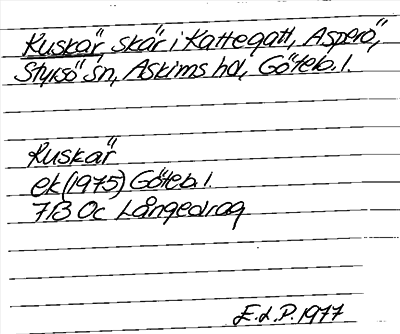 Kuskär, skär i Kattegatt, Asperö,
Styrsö sn, Askims hd, Göteb. l.
Kuskär
ek (1975) Göteb. l.
7B 0c Långedrag
E.d.P. 1977